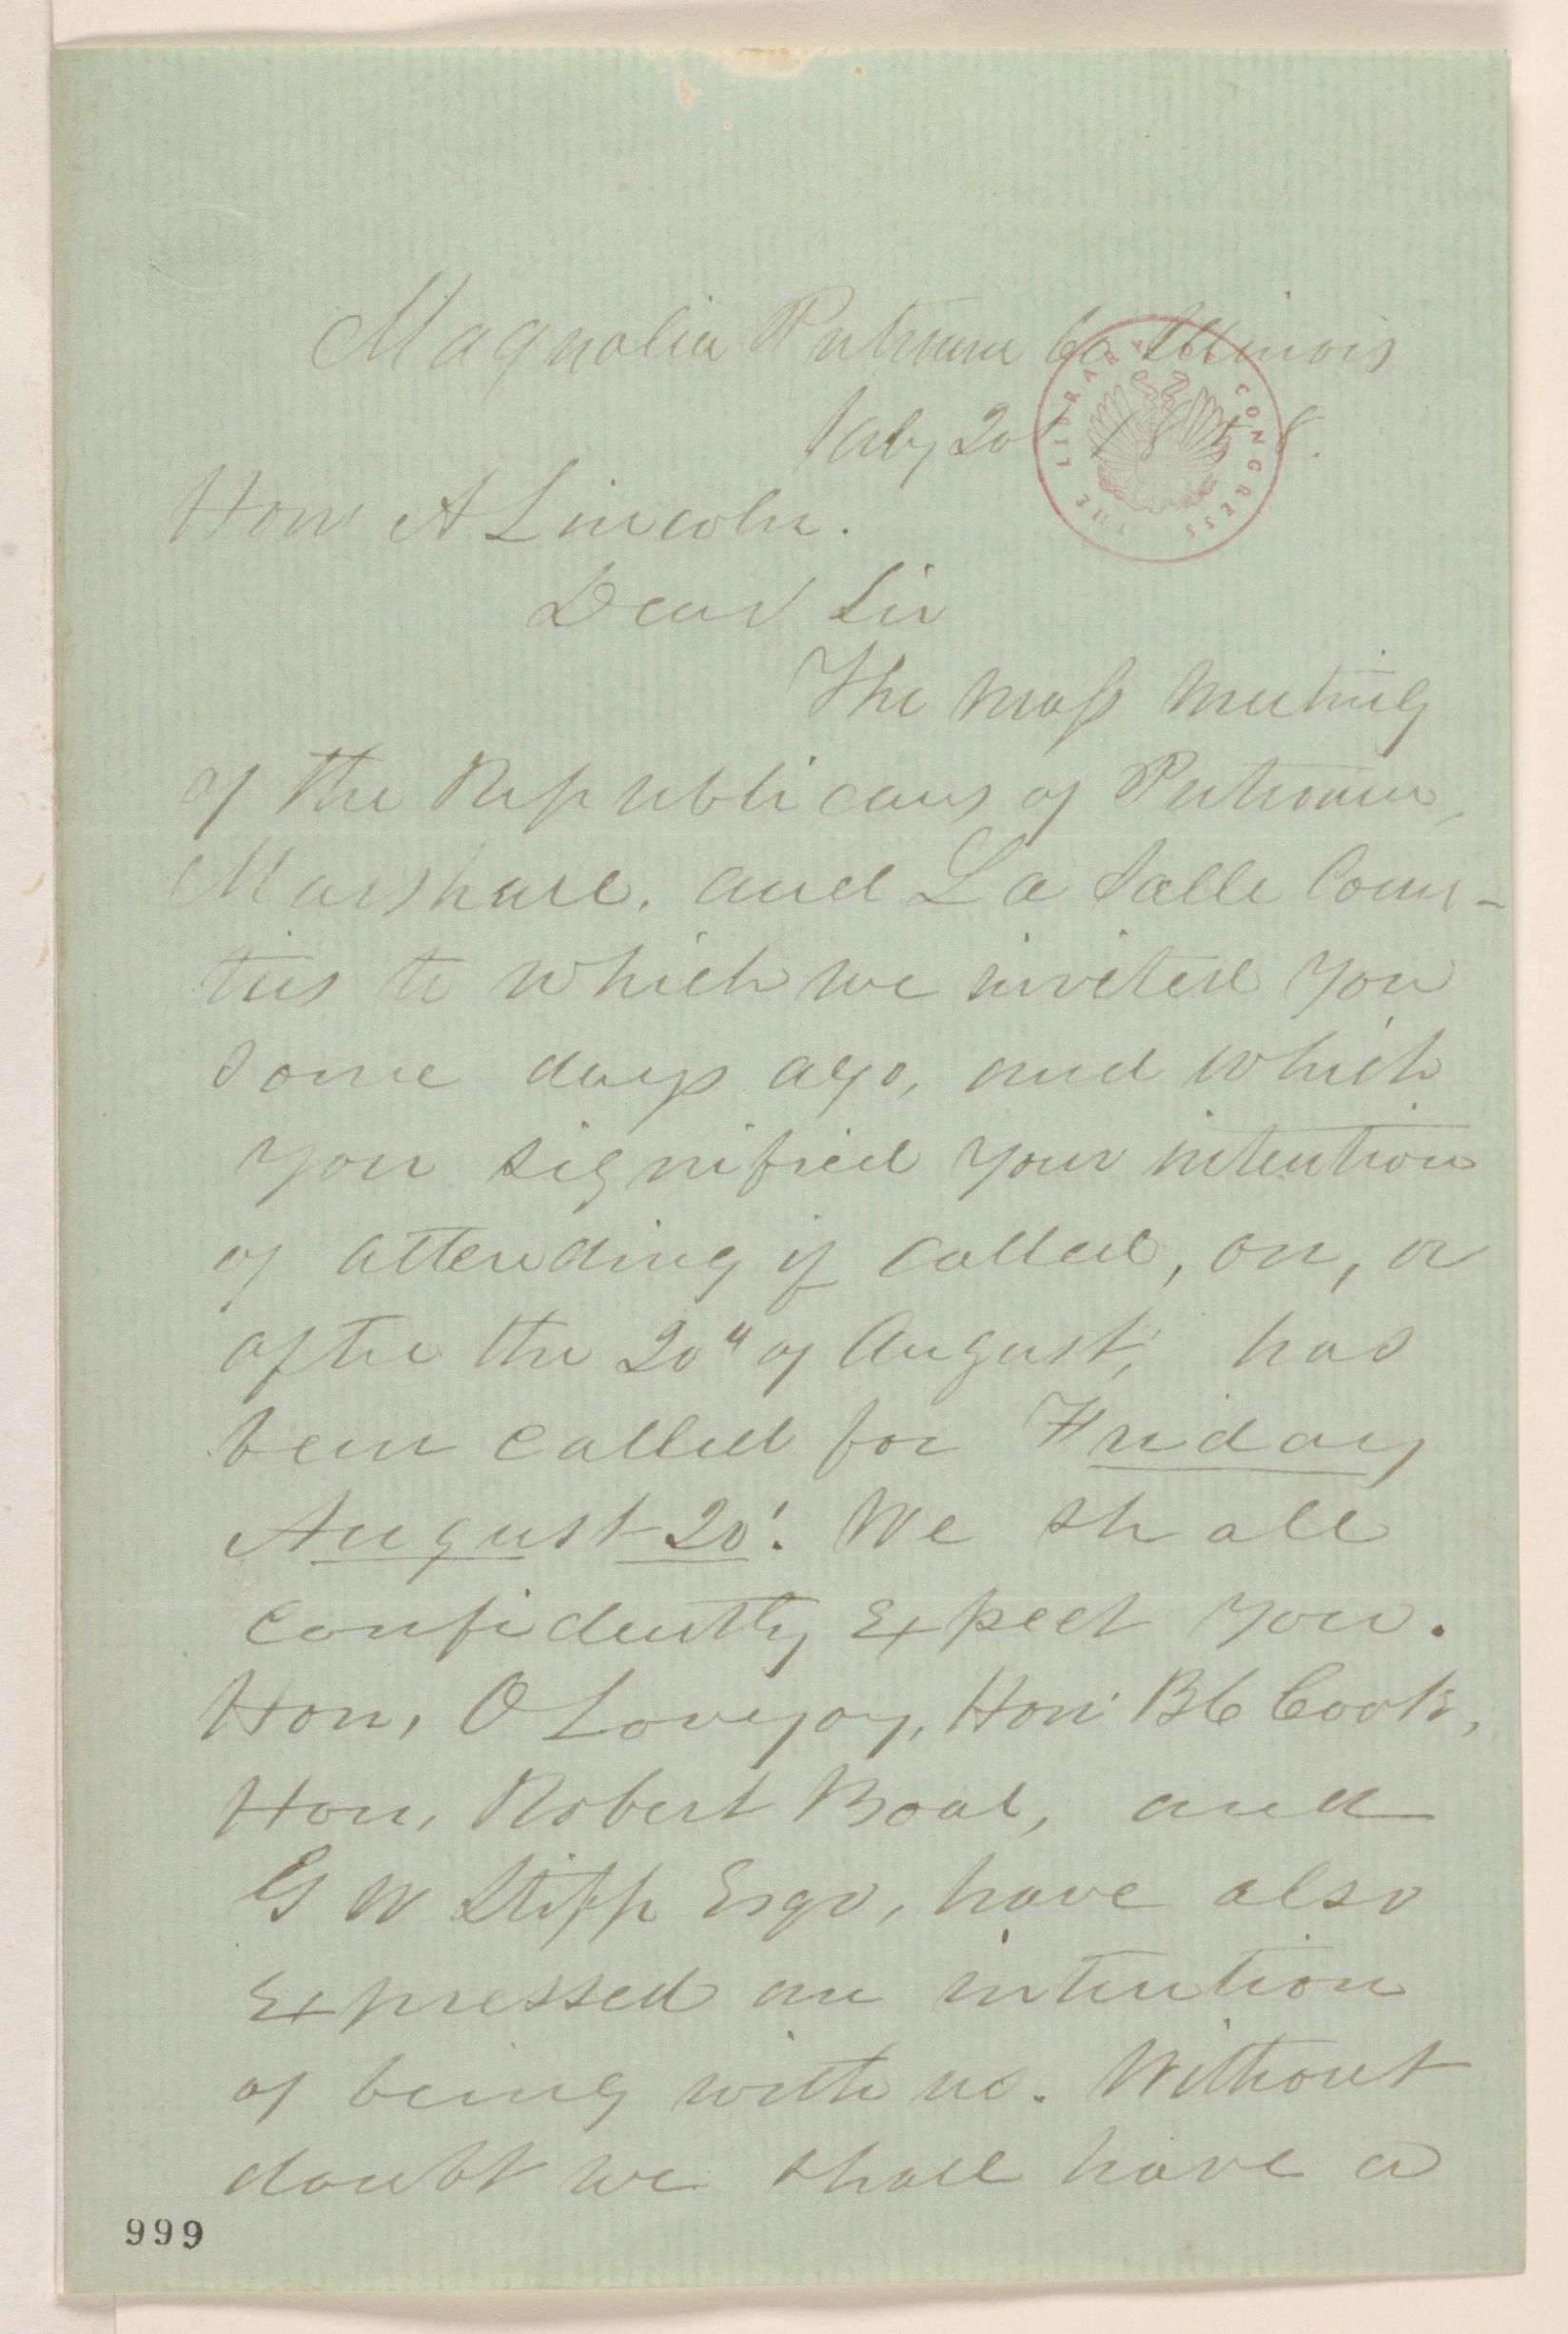 Magnolia Putnam Co Illinois
July 20 1858.
Hon A Lincoln.
Dear Sir
The mass meeting
of the Republicans of Putnam,
Marshall, and La Salle Coun-
ties to which we invited you
some days ago, and which
you signified your intention
of attending if called, on, or
after the 20" of August, has
been called for Friday
August 20'. We shall
confidently expect you.
Hon, O Lovejoy, Hon B C Cook,
Hon, Robert Boal, and
G W Stipp Esqr, have also
expressed an intention
of being with us. Without
doubt we shall have a
999
THE LIBRARY OF CONGRESS